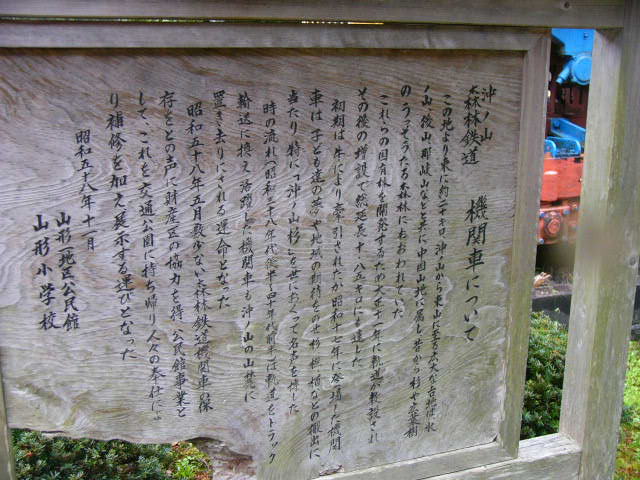 沖ノ山
森林鉄道　機関車について
この地より東に約二十キロ沖ノ山から東山に至る広大な台地は氷
ノ山後山那岐山などと共に中国山地に属し昔から杉や広葉樹
のうっそうたる森林におおわれていた
これらの国有林を開発するため大正十一年に軌道が敷設され
その後の増設で総延長十八・五キロにも達した
初期は牛により牽引されたが昭和十七年に登場した機関
車は子ども達の夢や地域の期待をのせ杉桧樅などの搬出に
当たり特に「沖ノ山杉」を世におくって名声を博した
時の流れで昭和三十八年代後半四十年代前半には軌道をトラック
輸送に換え活躍した機関車も沖ノ山の山麓に
置き去りにされる運命となった
昭和五十八年五月数少ない森林鉄道機関車の保
存をとの声に財産区の協力を得公民館事業と
して、これを交通公園に持ち帰り人々の奉仕によ
り補修を加え展示する運びとなった
昭和五十八年十一月
山形地区公民館
山形小学校